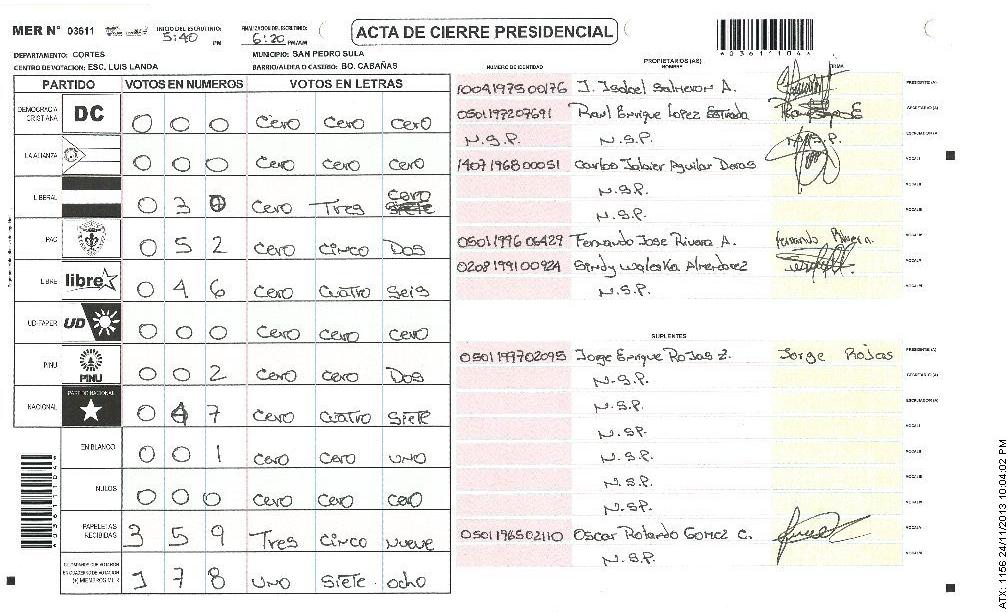 MER N° 03611 INICIO DEL ESCRUTINIO: 5:40 PM FINALIZACION DEL ESCRUTINIO: 6:20 PM/AM ACTA DE CIERRE PRESIDENCIAL
DEPARTAMENTO: CORTES MUNICIPIO: SAN PEDRO SULA
CENTRO DE VOTACION: ESC. LUIS LANDA BARRIO/ALDEA O CASERIO: BO. CABAÑAS
PARTIDO VOTOS EN NUMEROS VOTOS EN LETRAS
DEMOCRACIA CRISTIANA DC 0 0 0 Cero Cero Cero
LA ALIANZA 0 0 0 Cero Cero Cero
LIBERAL 0 3 0 Cero Tres Cero
PAC 0 5 2 Cero Cinco Dos
LIBRE libre 0 4 6 Cero Cuatro Seis
UD-FAPER UD 0 0 0 Cero Cero Cero
PINU PINU 0 0 2 Cero Cero Dos
NACIONAL PARTIDO NACIONAL 0 4 7 Cero Cuatro Siete
EN BLANCO 0 0 1 Cero Cero Uno
NULOS 0 0 0 Cero Cero Cero
PAPELETAS RECIBIDAS 3 5 9 Tres Cinco Nueve
CIUDADANOS QUE VOTARON EN CUADERNO DE VOTACION (+) MIEMBROS MER 1 7 8 Uno Siete Ocho
PROPIETARIOS (AS)
NUMERO DE IDENTIDAD NOMBRE FIRMA
1004197500176 J. Isabel Salmeron A. PRESIDENTE (A)
0501197207691 Raul Enrique Lopez Estrada SECRETARIO (A)
N.S.P. N.S.P. N.S.P. ESCRUTADOR (A)
1407196800051 Carlos Javier Aguilar Deras VOCAL I
N.S.P.
N.S.P.
0501199606429 Fernando Jose Rivera A. Fernando Rivera A.
0208199100924 Sindy Waleska Almendarez
N.S.P.
SUPLENTES
0501197702095 Jorge Enrique Rojas Z. Jorge Rojas PRESIDENTE (A)
N.S.P. SECRETARIO (A)
N.S.P. ESCRUTADOR (A)
N.S.P.
N.S.P.
N.S.P.
N.S.P.
0501196502110 Oscar Rolando Gomez C.
N.S.P.
ATX: 1156 24/11/2013 10:04:02 PM